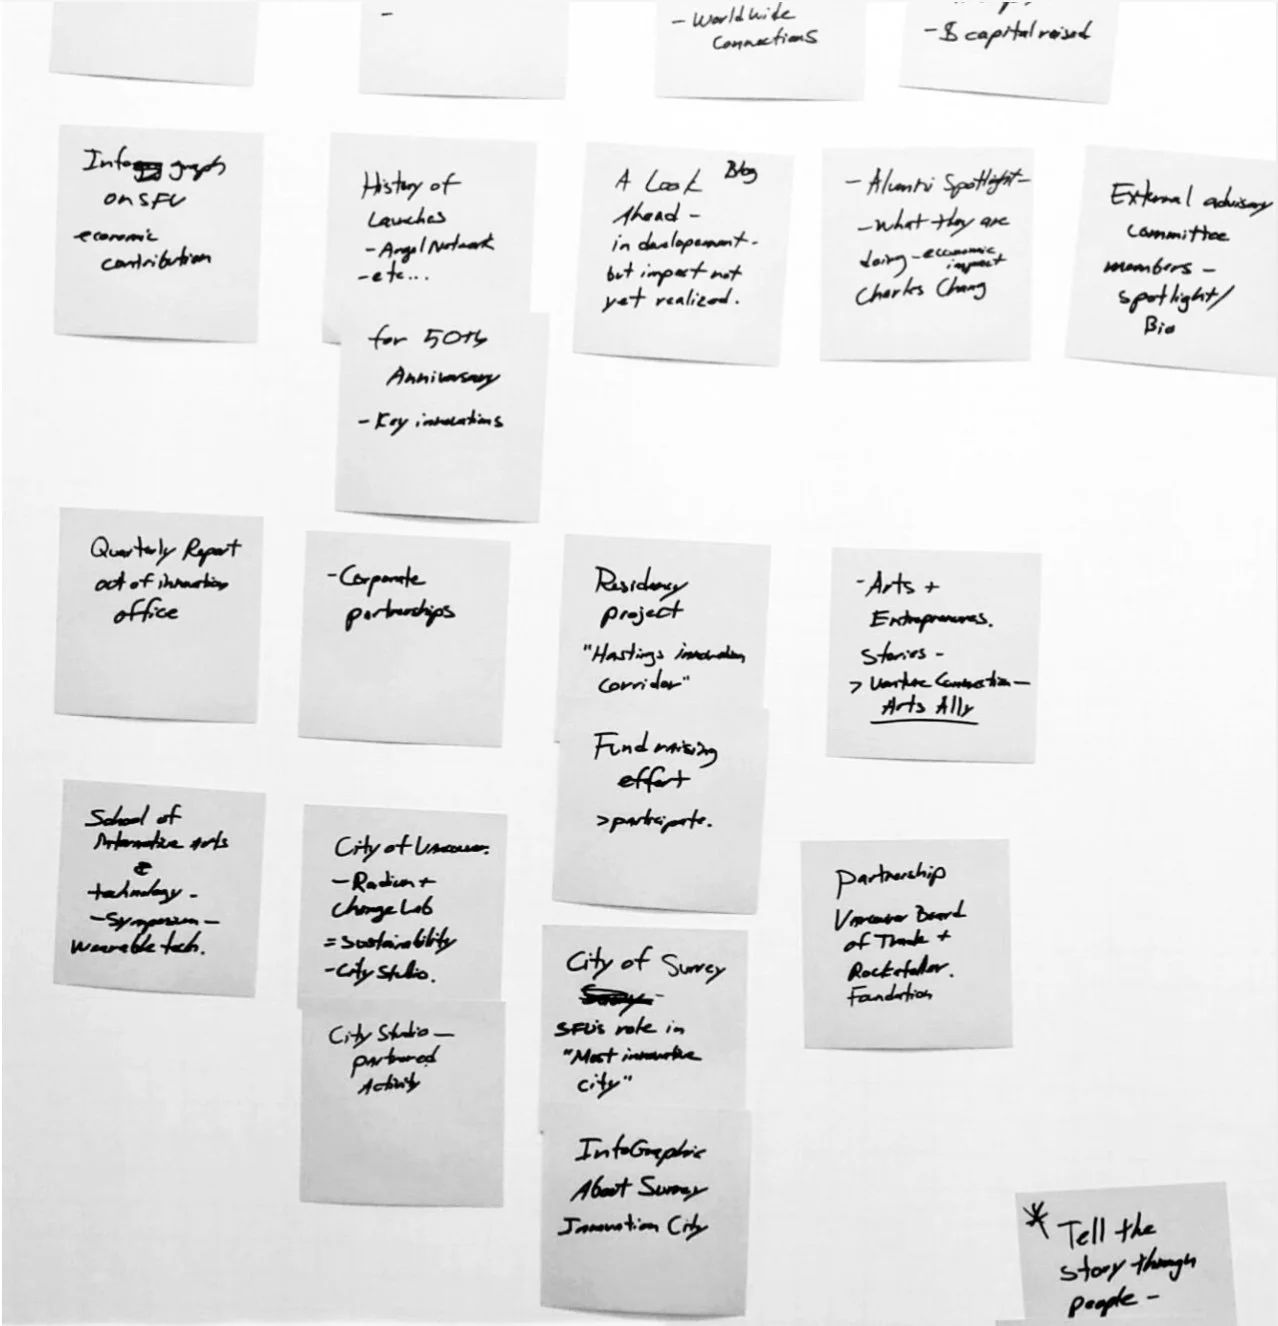 -
- Worldwide
Connections
- $ capital raised
Info graph
on SFU
economic
contribution
History of
Launches
- Angel Network
- etc...
for 50th
Anniversary
- Key innovations
A Look Blog
Ahead -
in developement.
but impact not
yet realized.
- Alumni Spotlight -
- what they are
doing - economic
impact
Charles Chang
External advisory
Committee
members -
spotlight/
Bio
Quarterly Report
out of innovation
office
- Corporate
partnerships
Residency
project
"Hastings innovation
corridor"
Fundraising
effort
> participate.
- Arts +
Entrepreneurs.
Stories -
> Venture Connection -
Arts Ally
School of
Alternative Arts
&
technology -
- Symposium -
Wearable tech.
City of Vancouver.
- Radius +
Change Lab
= Sustainability
- City Studio.
City Studio -
partnered
Activity
City of Surrey
SFU's role in
"Most innovative
city"
InfoGraphic
About Surrey
Innovation City
Partnership
Vancouver Board
of Trade +
Rockefeller.
Foundation
* Tell the
story through
people -